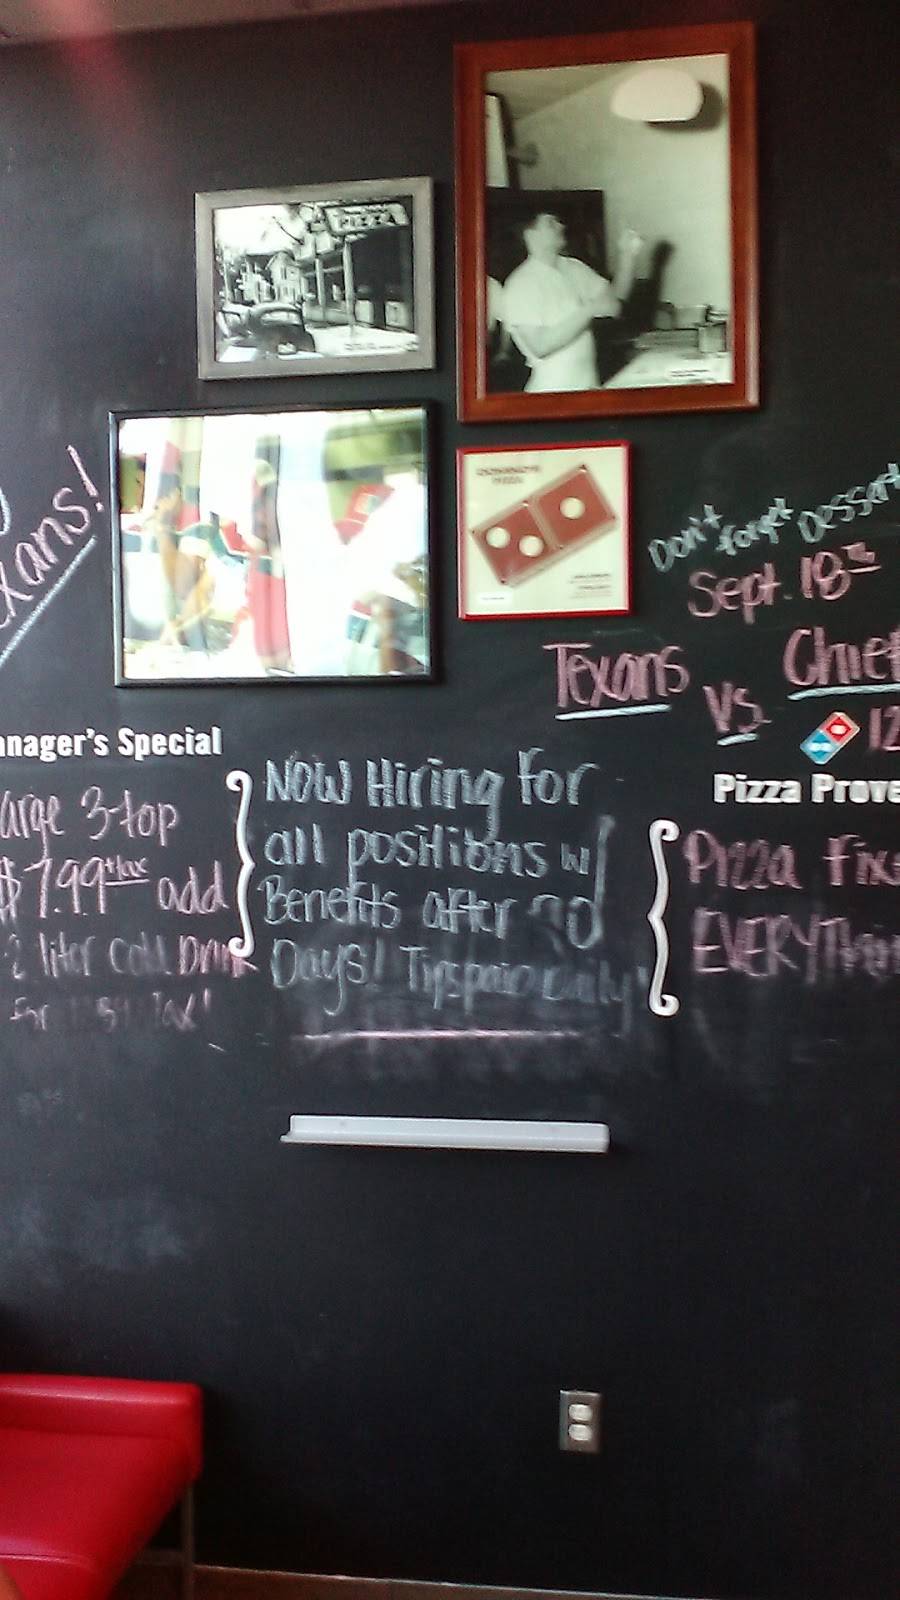 PIZZA
DOMINO'S
PIZZA
exans!
Don't forget Dessert
Sept. 18th
Texans vs. Chief
12
anager's Special
Pizza Prove
arge 3-top
$7.99 +tax add
2 liter cold Drink
For Tax!
NOW Hiring For
all positions w/
Benefits after 90
Days! Tips paid Daily!
Pizza Fixe
EVERYThin